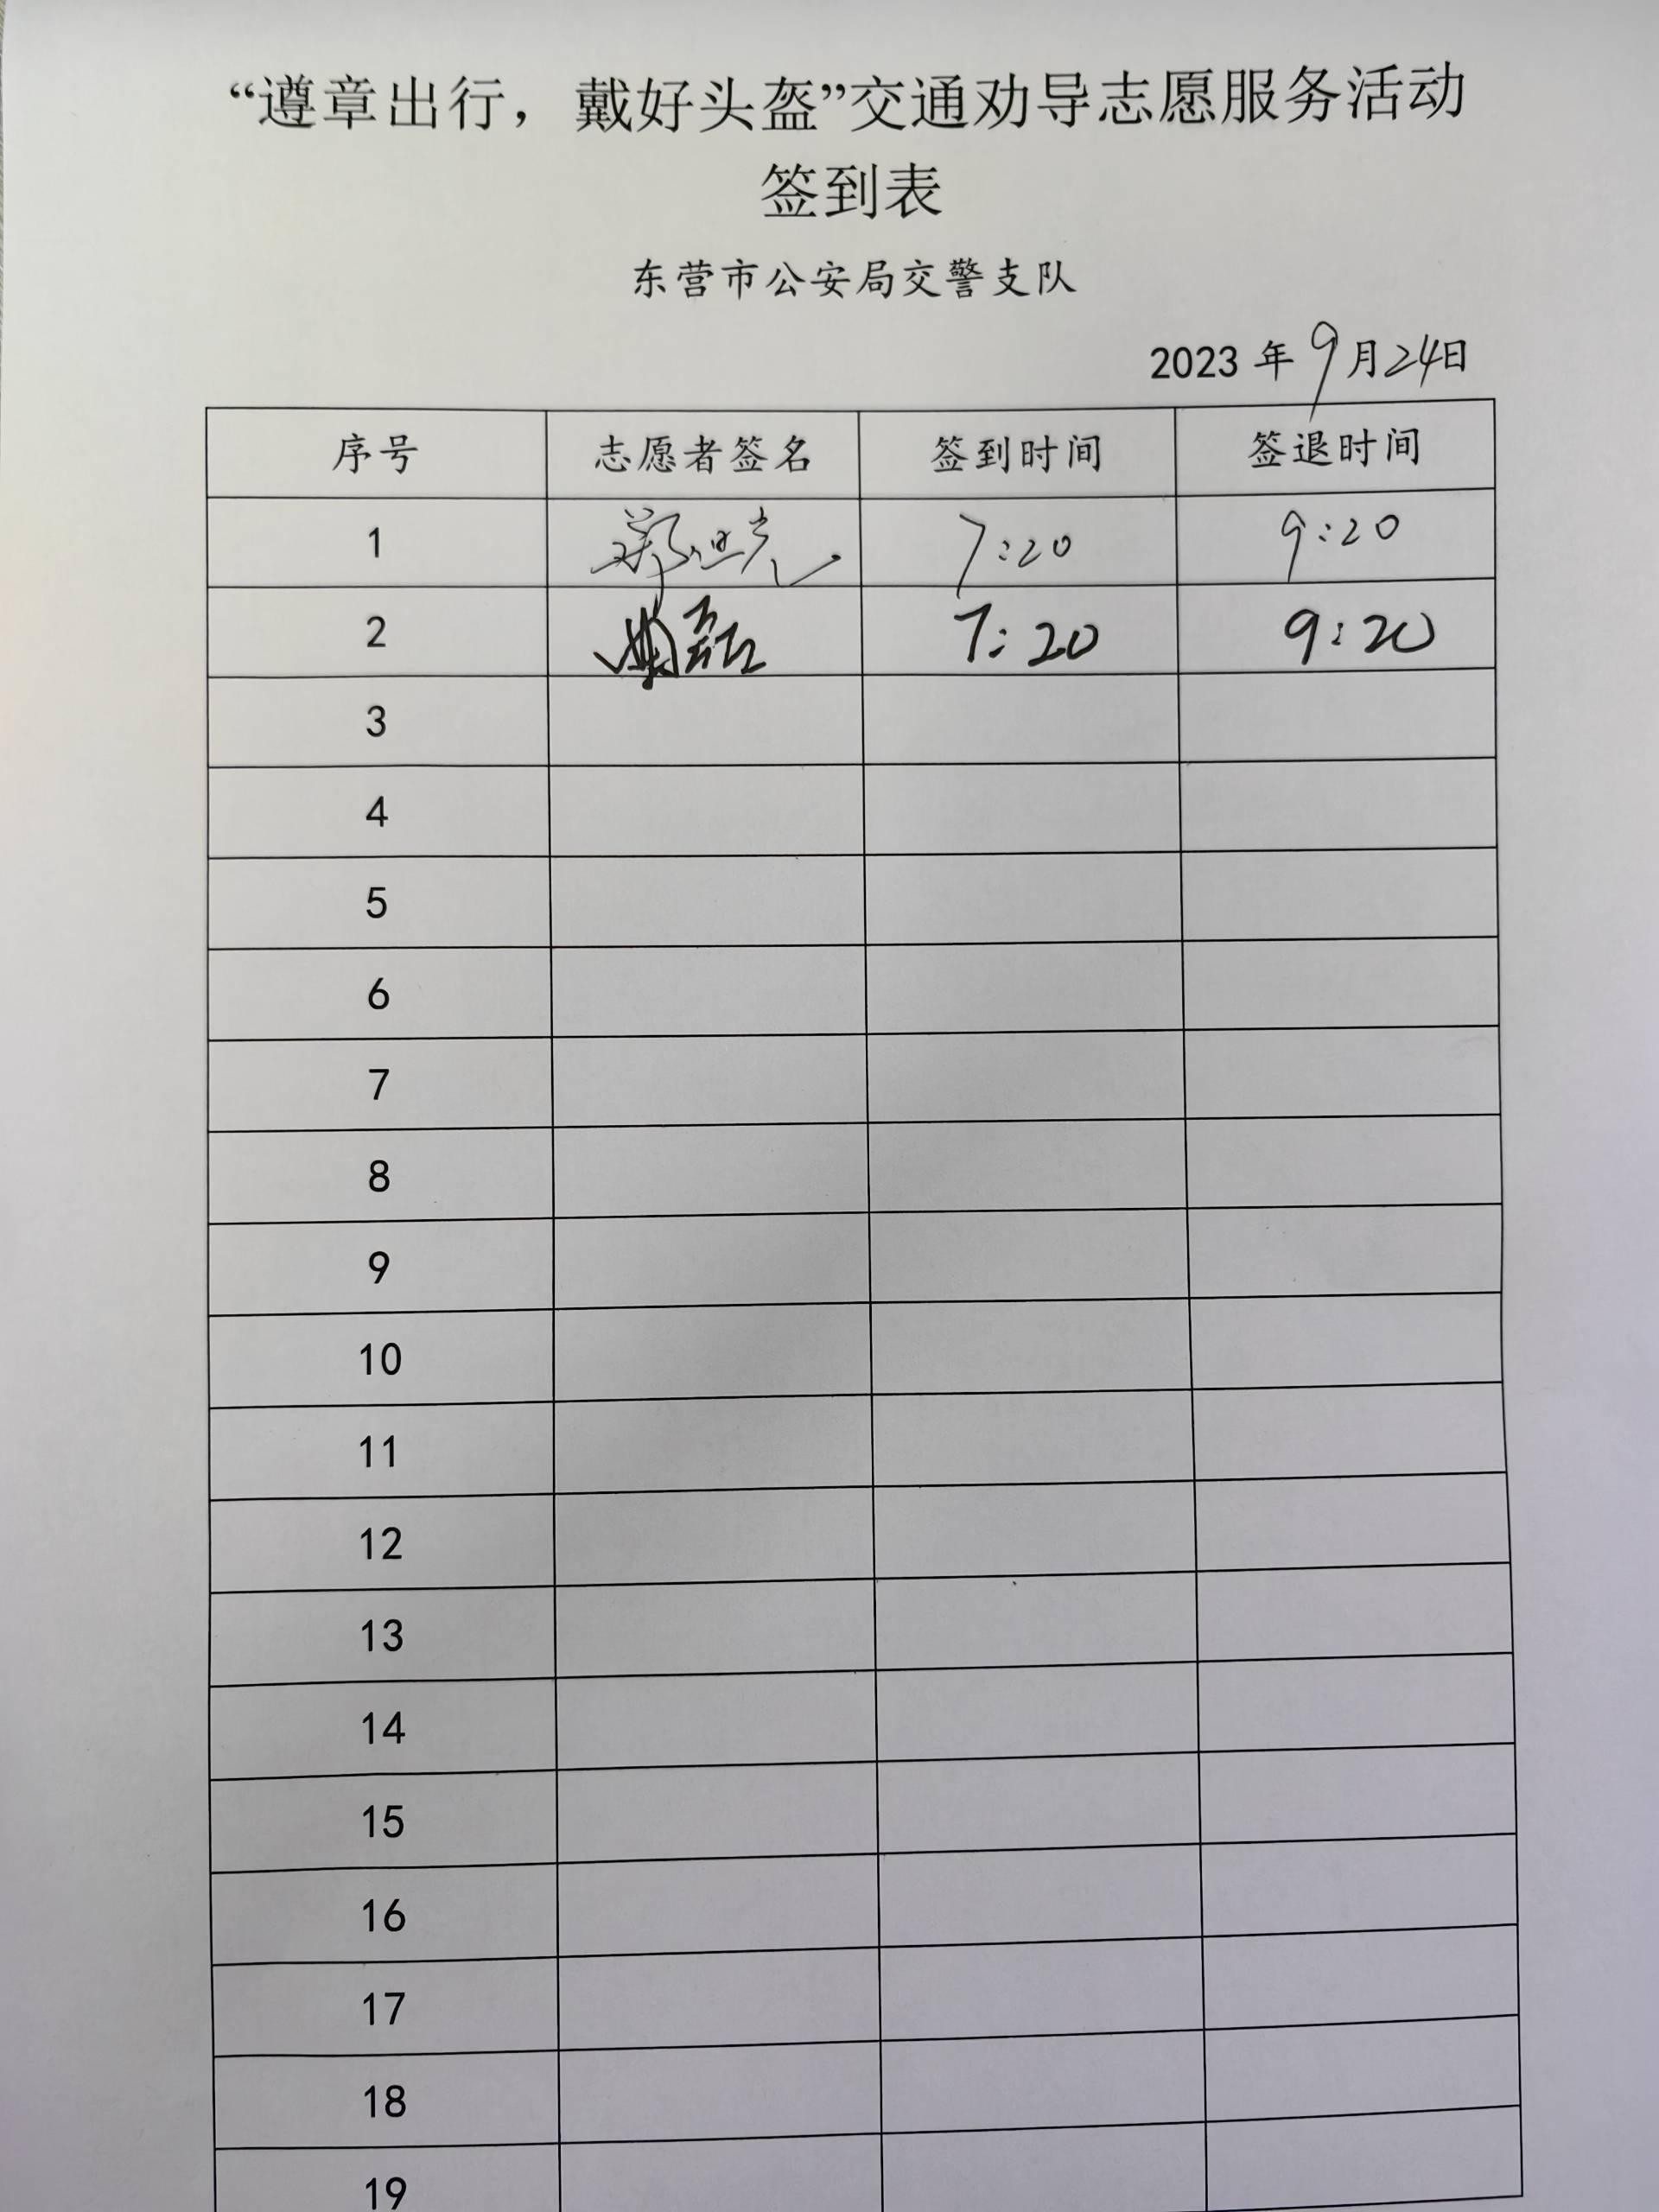 “遵章出行，戴好头盔”交通劝导志愿服务活动
签到表
东营市公安局交警支队
2023 年 9月24日
序号 志愿者签名 签到时间 签退时间
1 7:20 9:20
2 7:20 9:20
3
4
5
6
7
8
9
10
11
12
13
14
15
16
17
18
19